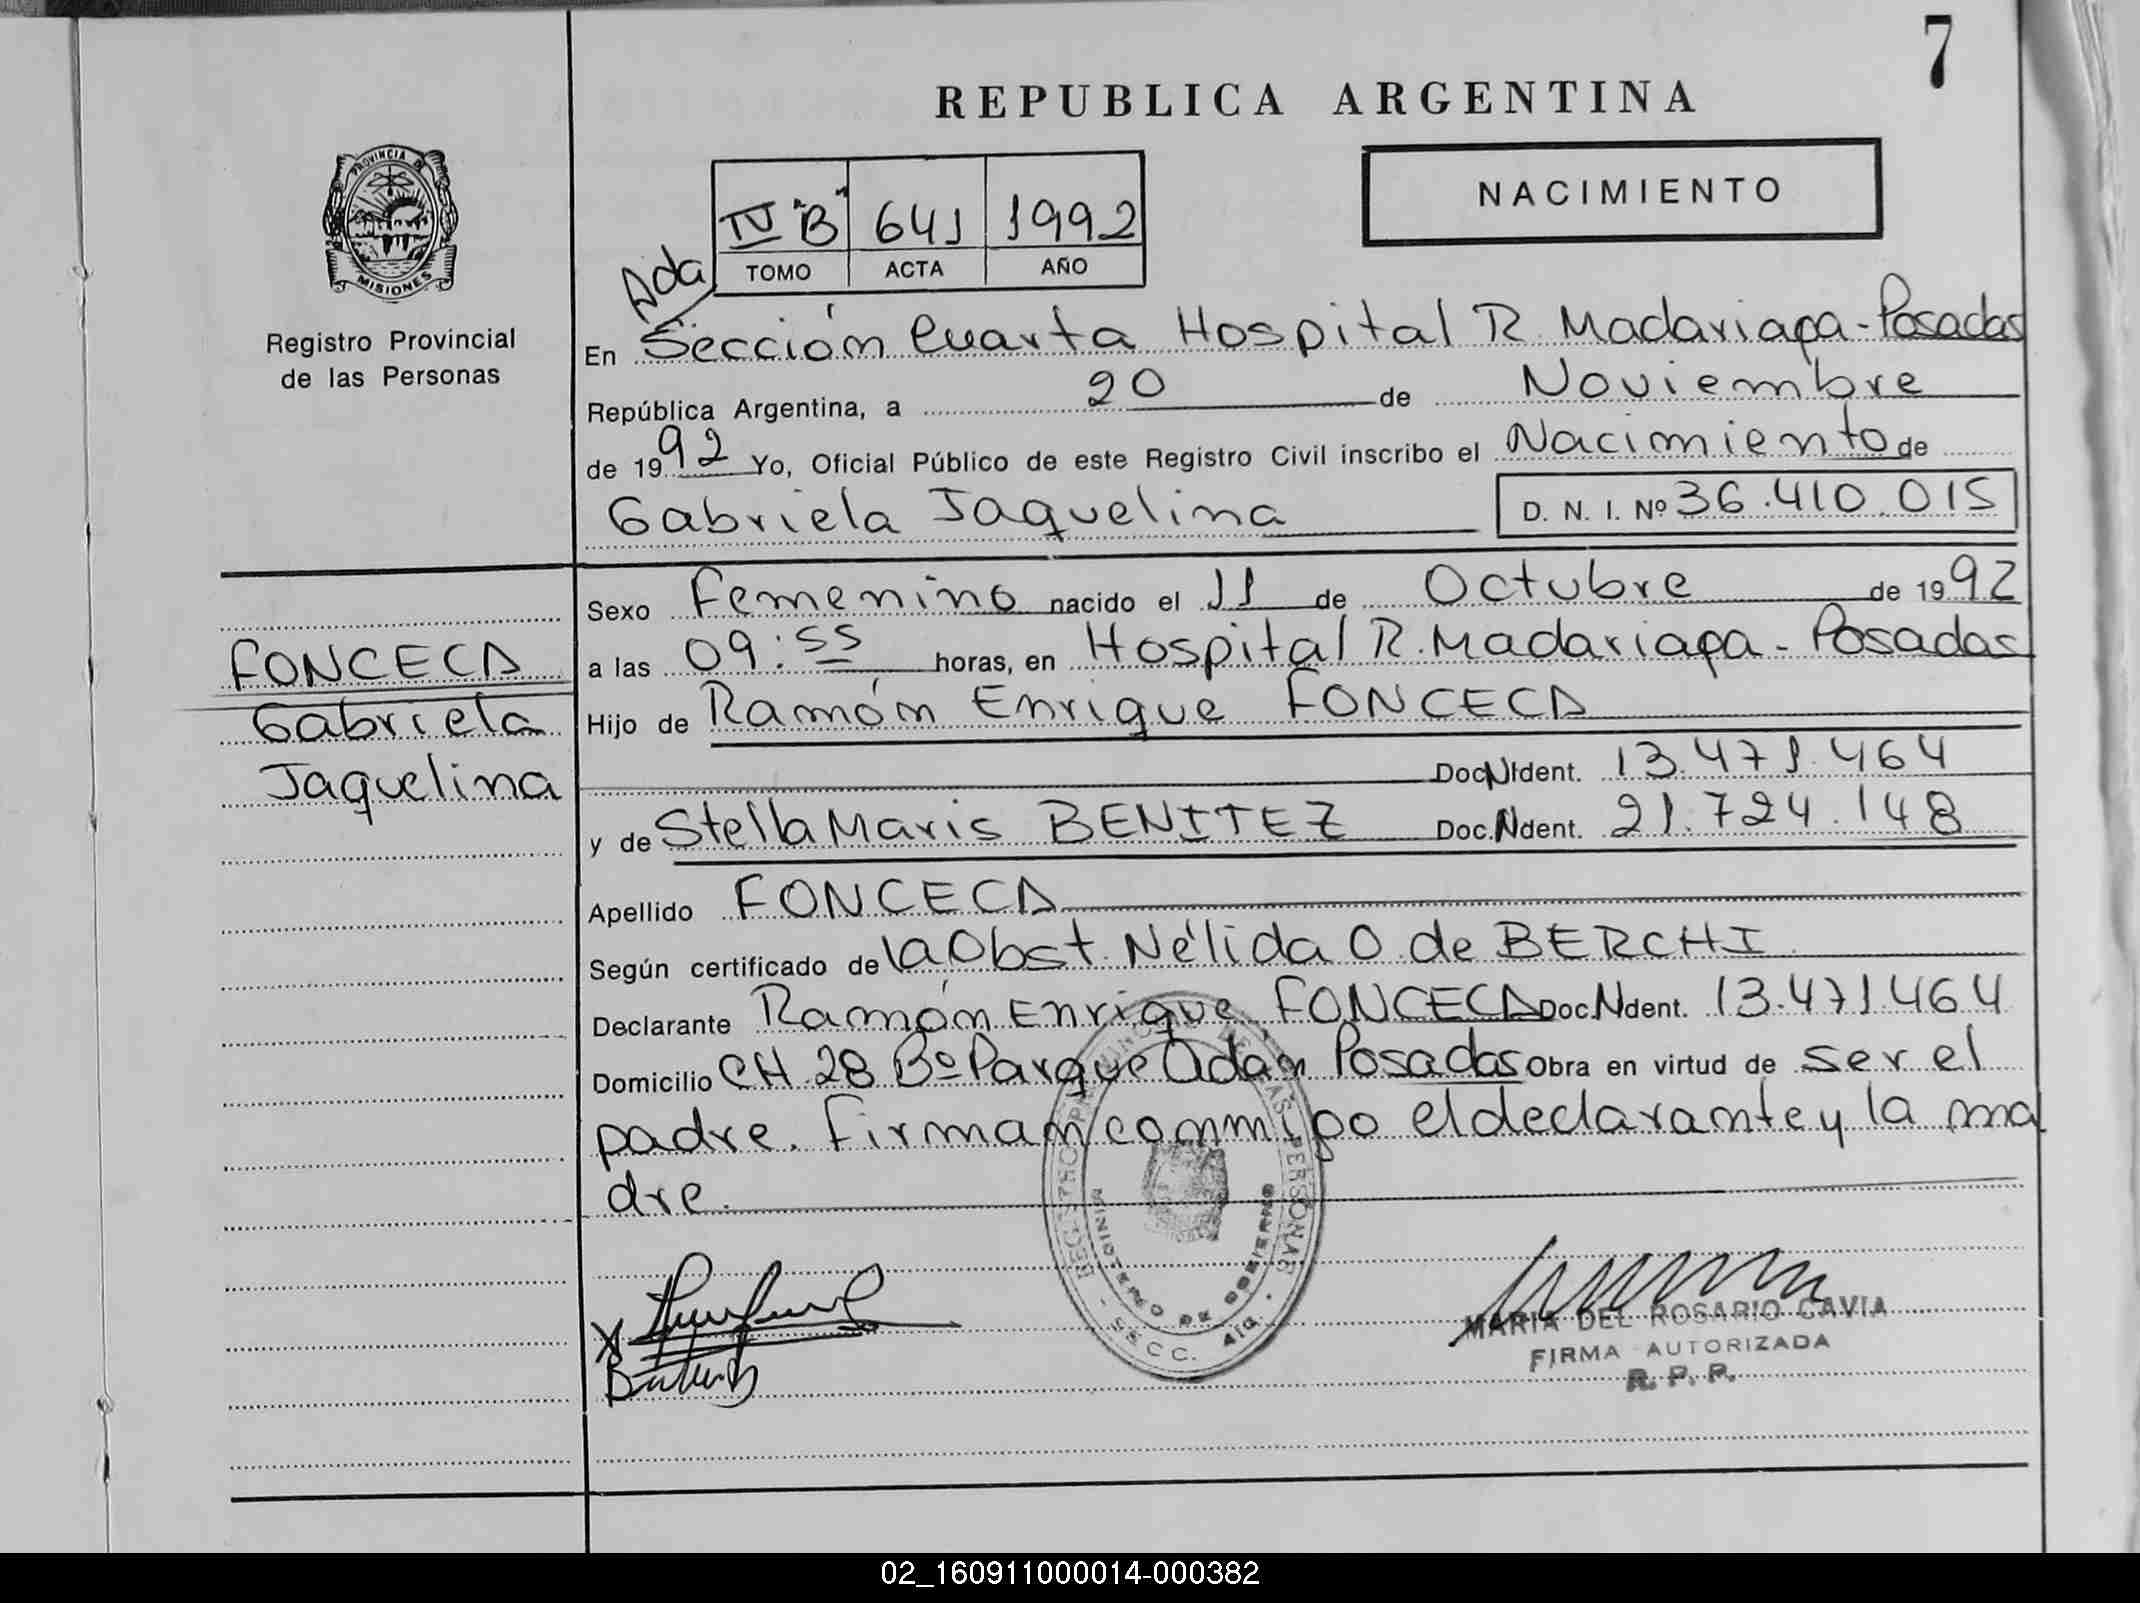 7
REPUBLICA ARGENTINA
NACIMIENTO
PROVINCIA DE
MISIONES
Registro Provincial
de las Personas
IV "B" 641 1992
TOMO ACTA AÑO
Ada
En Sección Cuarta Hospital R. Madariaga - Posadas
República Argentina, a 20 de Noviembre
de 1992 Yo, Oficial Público de este Registro Civil inscribo el Nacimiento de
Gabriela Jaquelina D. N. I. Nº 36.410.015
Sexo Femenino nacido el 11 de Octubre de 1992
a las 09:55 horas, en Hospital R. Madariaga - Posadas
Hijo de Ramón Enrique FONCECA
Doc.N.Ident. 13.471.464
y de Stella Maris BENITEZ Doc.N.Ident. 21.724.148
Apellido FONCECA
Según certificado de la Obst. Nélida O. de BERCHI
Declarante Ramón Enrique FONCECA Doc.N.Ident. 13.471.464
Domicilio CH 28 Bº Parque Adam Posadas Obra en virtud de ser el
padre. Firman conmigo el declarante y la ma
dre.
FONCECA
Gabriela
Jaquelina
REGISTRO PROVINCIAL DE LAS PERSONAS
MINISTERIO DE GOBIERNO
SECC. 4ta.
MARIA DEL ROSARIO CAVIA
FIRMA AUTORIZADA
R. P. P.
02_160911000014-000382